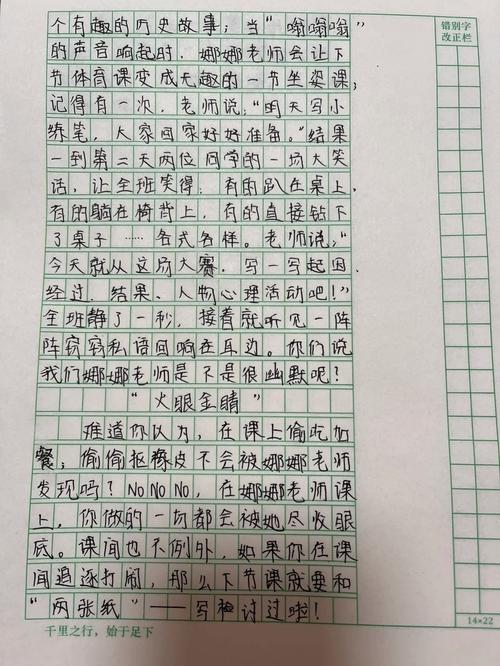 个有趣的历史故事；当“嗡嗡嗡”
的声音响起时，娜娜老师会让下
节体育课变成无趣的一节坐姿课，
记得有一次，老师说：“明天写小
练笔，大家回家好好准备。”结果
一到第二天两位同学的一场大笑
话，让全班笑得，有的趴在桌上，
有的躺在椅背上，有的直接钻下
了桌子……各式各样。老师说：“
今天就从这场大赛，写一写起因、
经过、结果、人物心理活动吧！”
全班静了一秒，接着就听见一阵
阵窃窃私语回响在耳边。你们说
我们娜娜老师是不是很幽默呢？
“火眼金睛”
难道你以为，在课上偷吃加
餐；偷偷抠橡皮不会被娜娜老师
发现吗？NO NO NO，在娜娜老师课
上，你做的一切都会被她尽收眼
底。课间也不例外，如果你在课
间追逐打闹，那么下节课就要和
“两张纸”——写检讨过啦！
错别字
改正栏
千里之行，始于足下
14×22